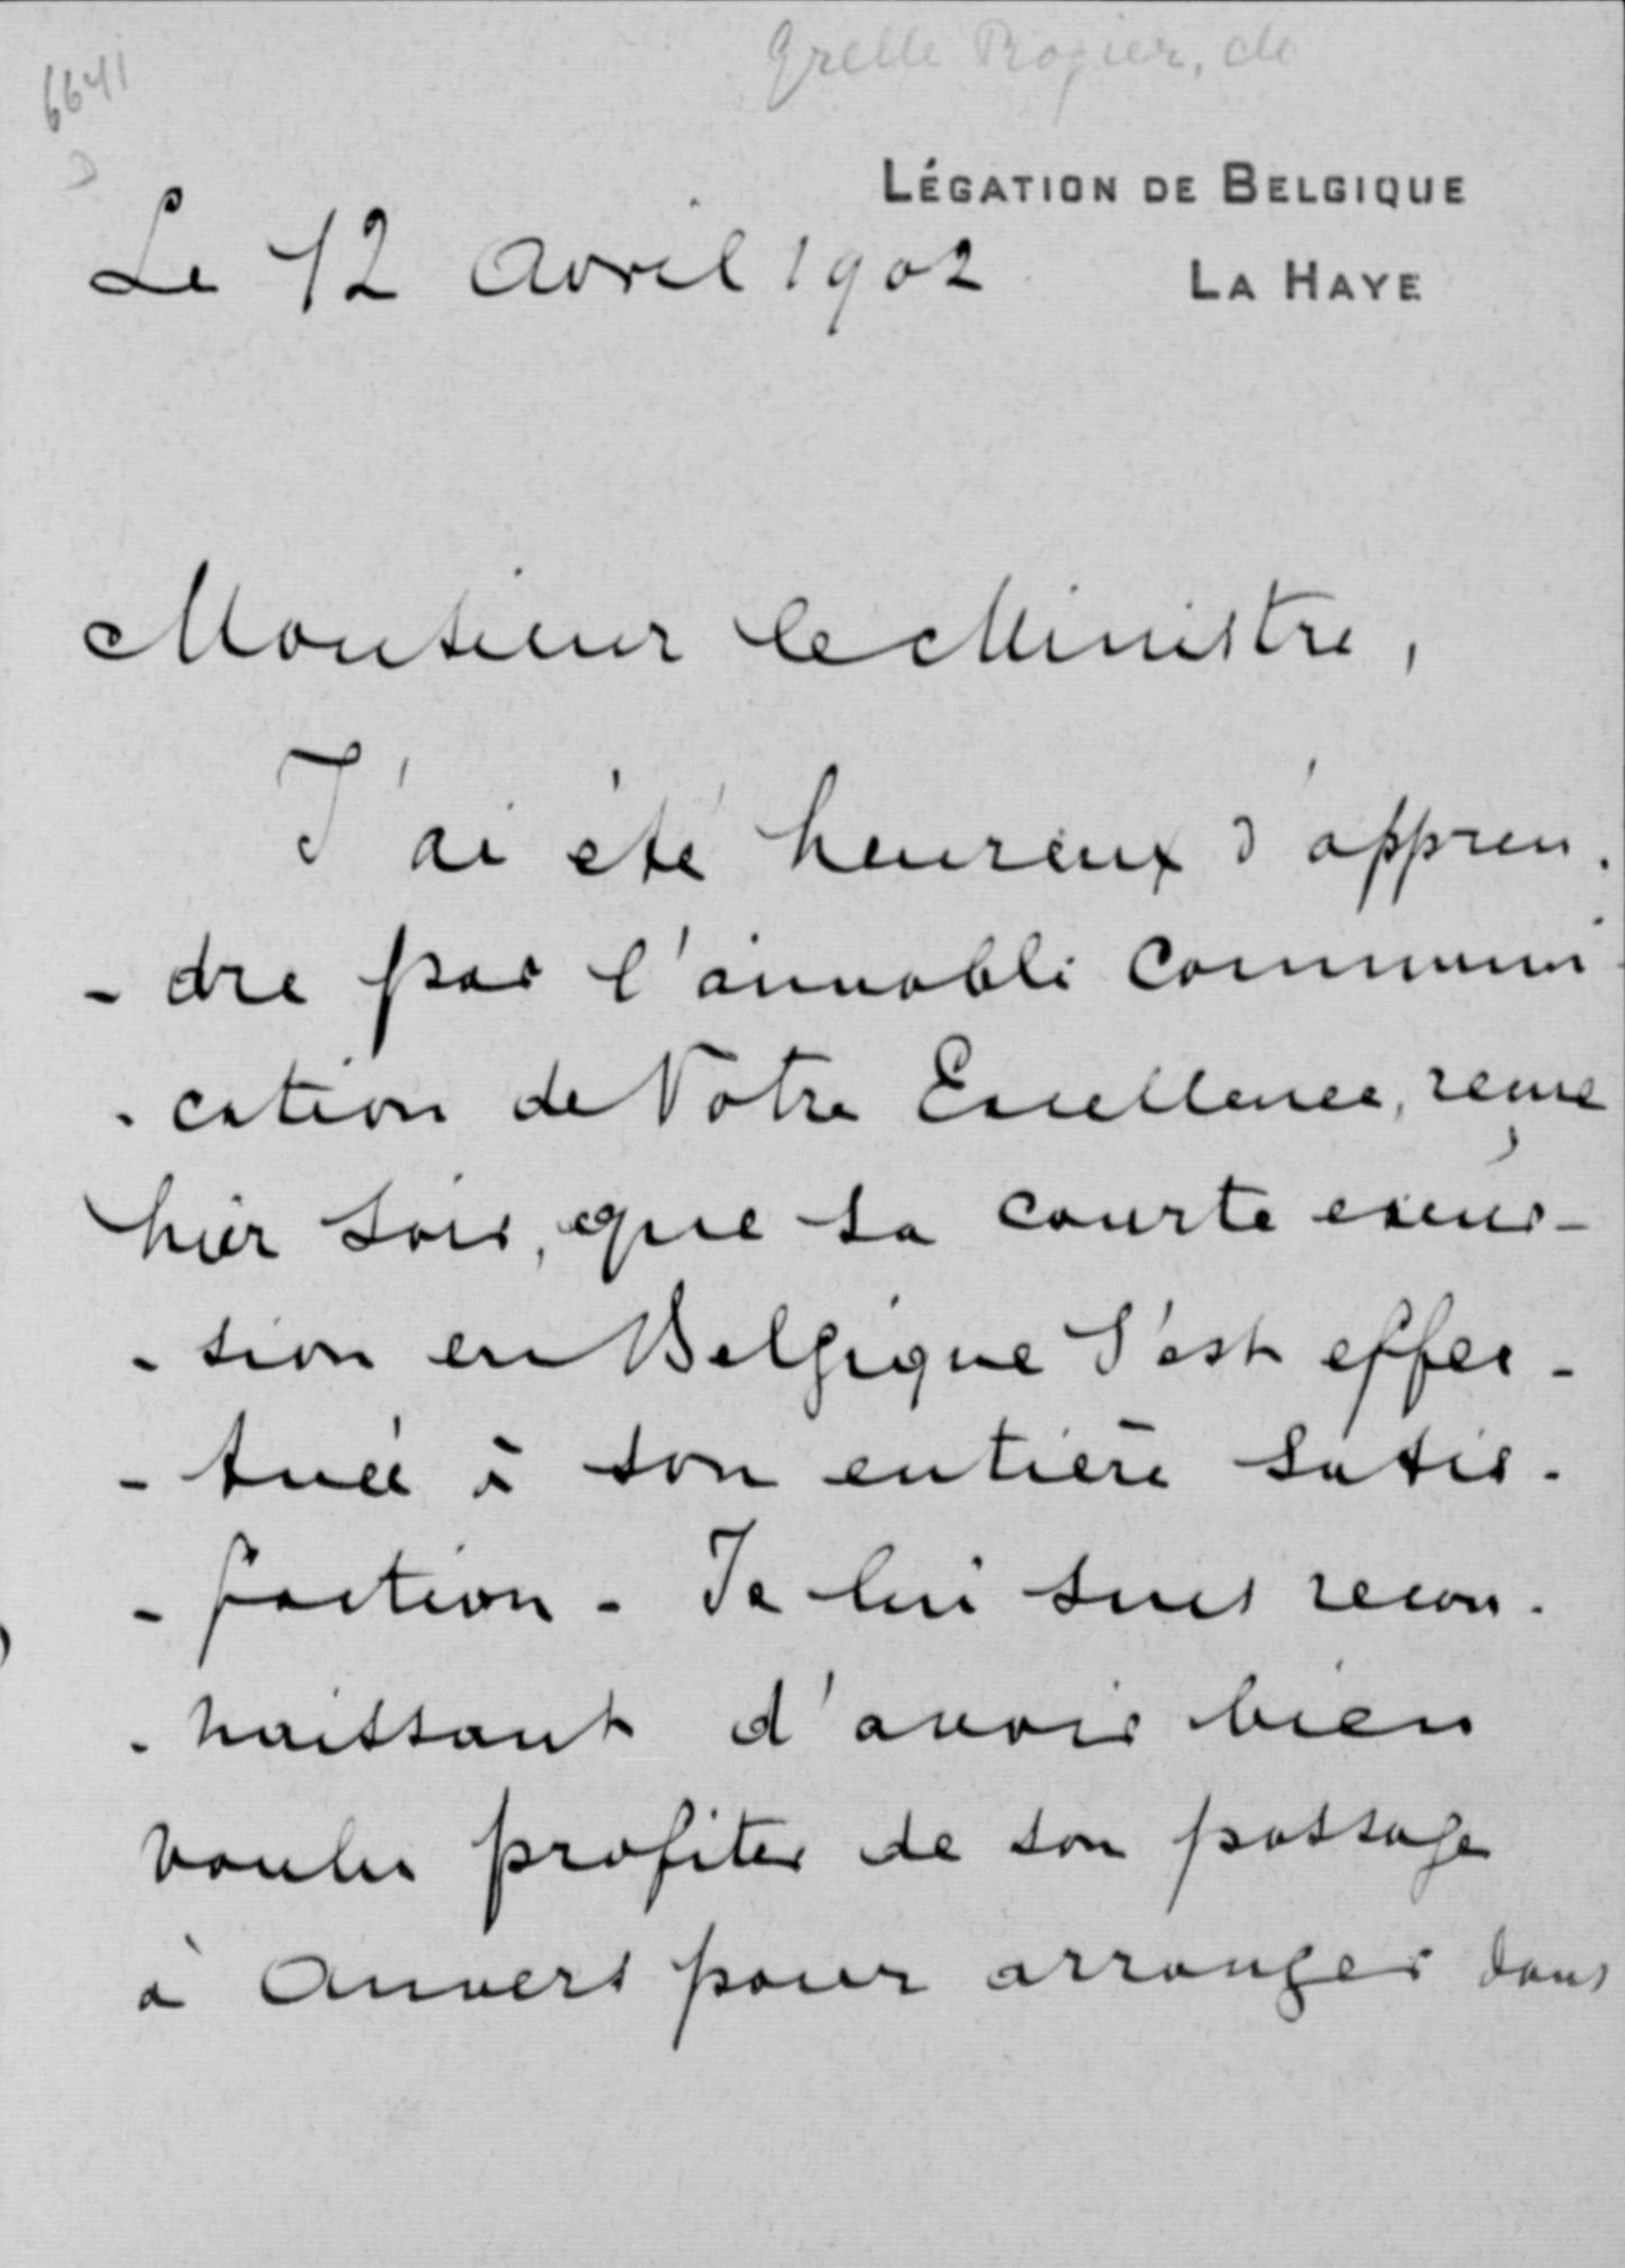 Grelle Rogier, de
6641
LÉGATION DE BELGIQUE
Le 12 Avril 1902
LA HAYE
Monsieur le Ministre,
J'ai été heureux d'appren-
- dre par l'aimable communi-
- cation de Votre Excellence, reçue
hier soir, que sa courte excur-
- sion en Belgique s'est effec-
- tuée à son entière satis-
- faction - Je lui suis recon-
- naissant d'avoir bien
voulu profiter de son passage
à Anvers pour arranger dans